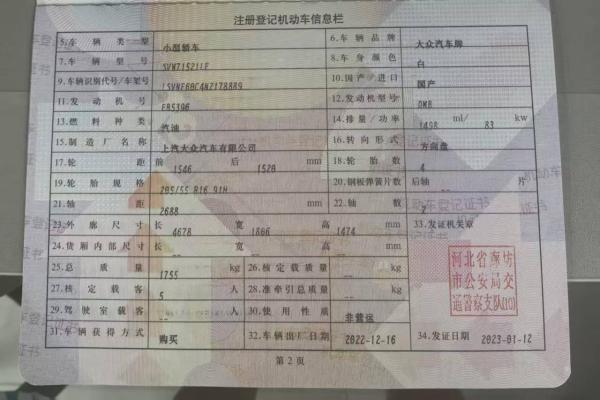 注册登记机动车信息栏
5.车辆类型 小型轿车 6.车辆品牌 大众汽车牌
7.车辆型号 SVW71521LE 8.车身颜色 白
9.车辆识别代号/车架号 LSVNE60C4N2178889 10.国产/进口 国产
11.发动机号 F85396 12.发动机型号 DMB
13.燃料种类 汽油 14.排量/功率 1498 ml/ 83 kw
15.制造厂名称 上汽大众汽车有限公司 16.转向形式 方向盘
17.轮距 前 1546 后 1520 mm 18.轮胎数 4
19.轮胎规格 205/55 R16 91H 20.钢板弹簧片数 后轴 -- 片
21.轴距 2688 mm 22.轴数 2
23.外廓尺寸 长 4678 宽 1806 高 1474 mm 33.发证机关章
24.货厢内部尺寸 长 -- 宽 -- 高 -- mm
25.总质量 1755 kg 26.核定载质量 -- kg
27.核定载客 5 人 28.准牵引总质量 -- kg
29.驾驶室载客 -- 人 30.使用性质 非营运
31.车辆获得方式 购买 32.车辆出厂日期 2022-12-16 34.发证日期 2023-01-12
河北省廊坊
市公安局交
通警察支队(10)
第2页